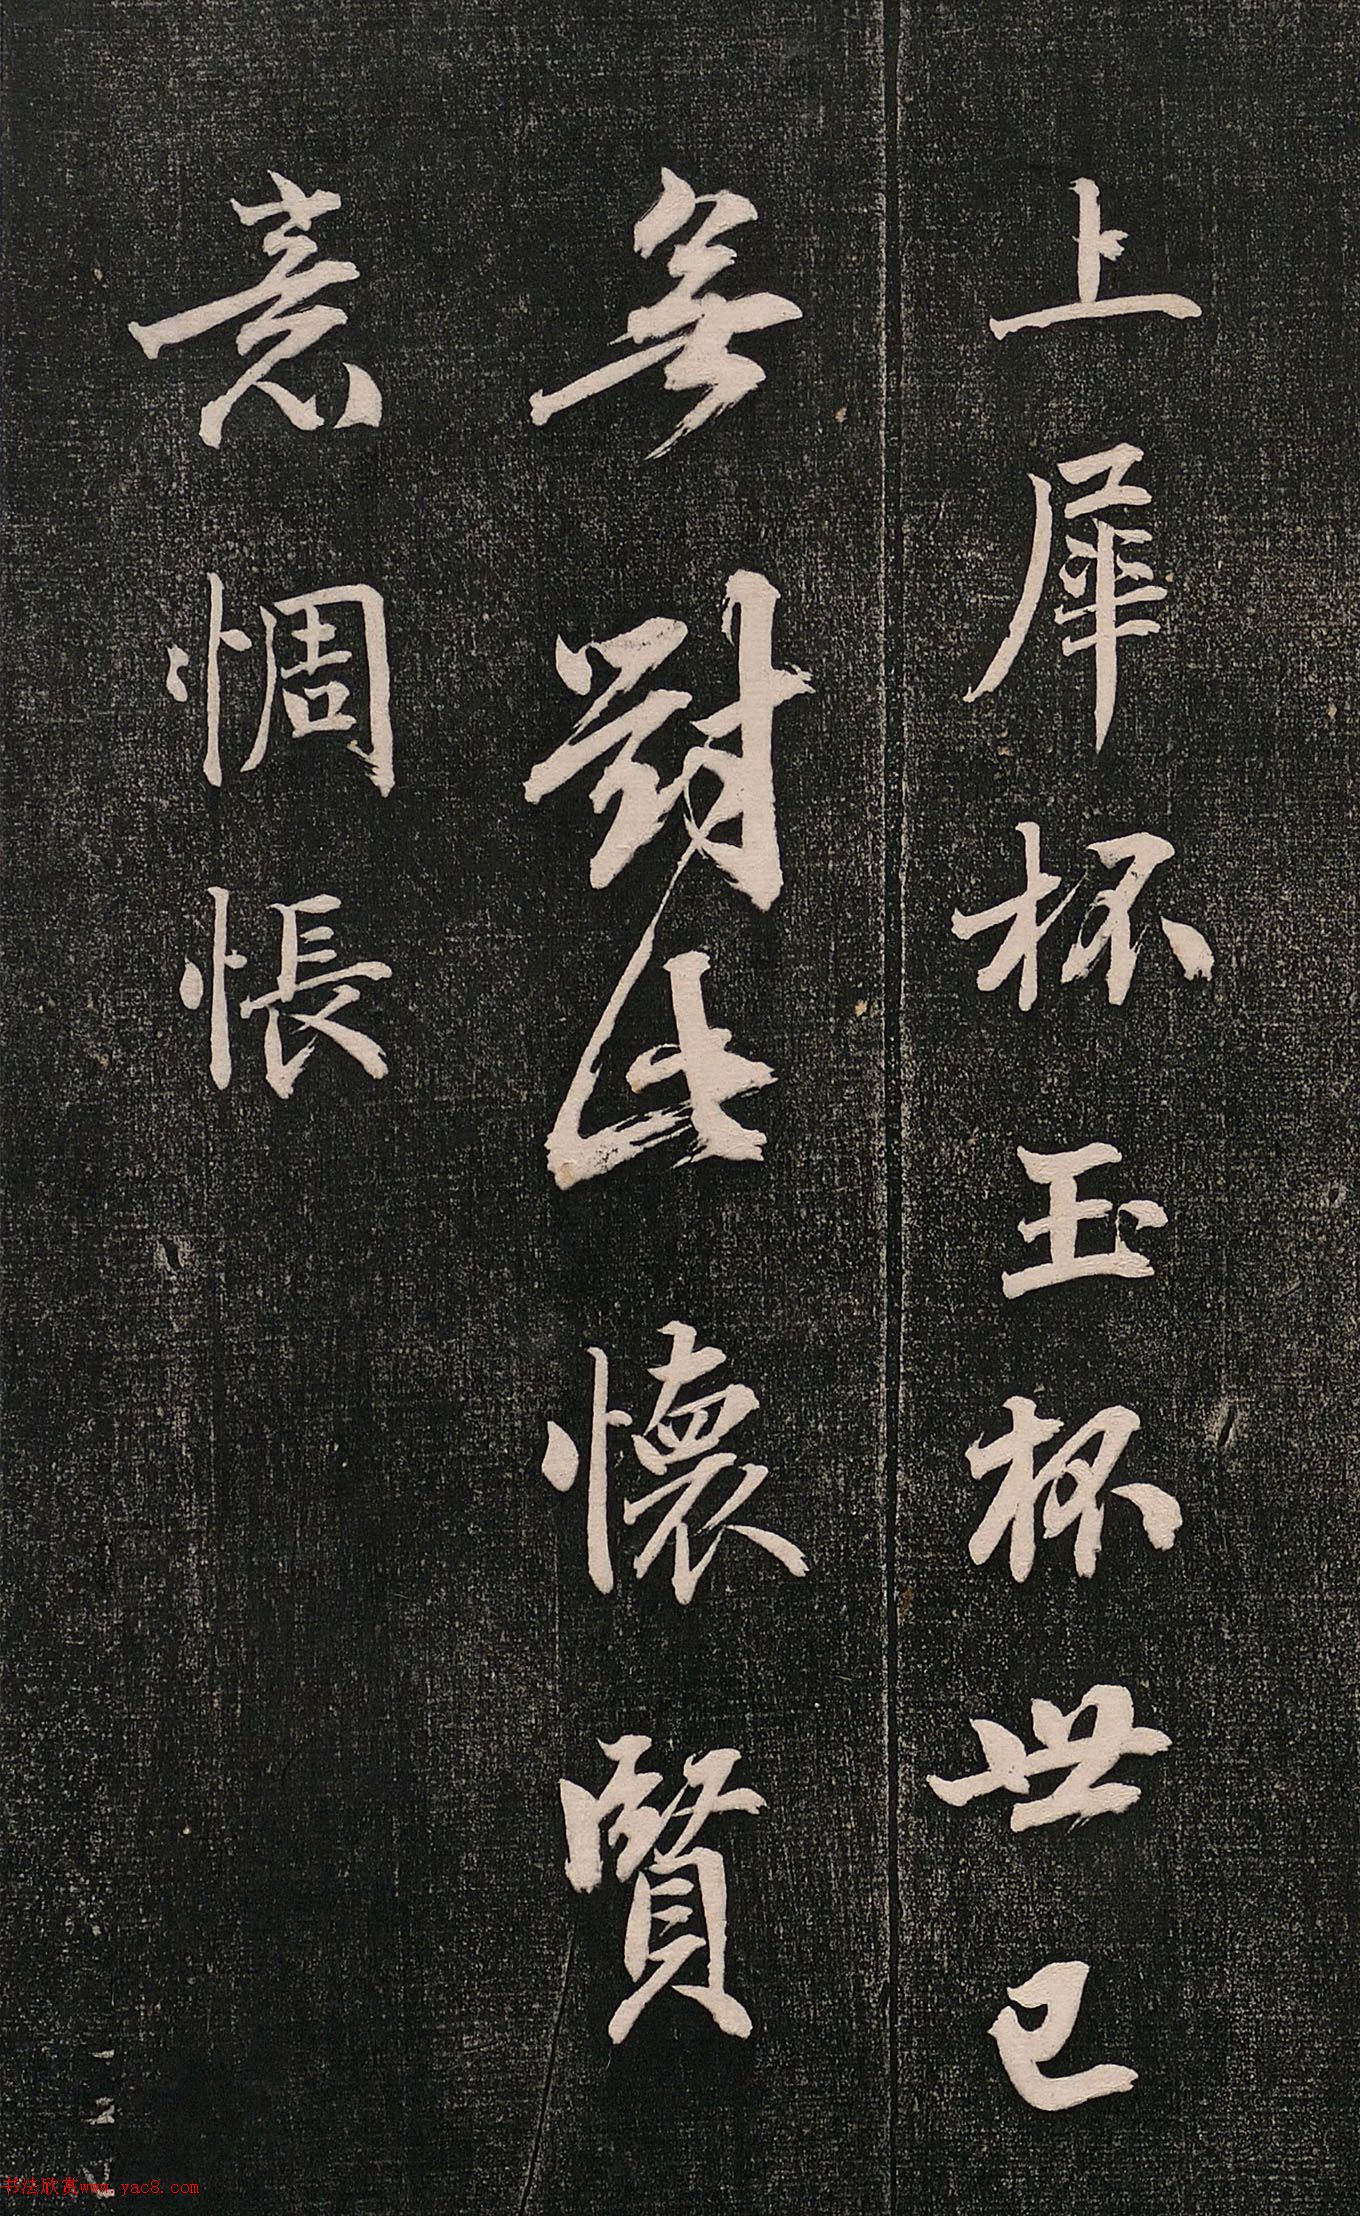 上犀杯玉杯世已
無對此懷賢
意惆悵
书法欣赏www.yac8.com